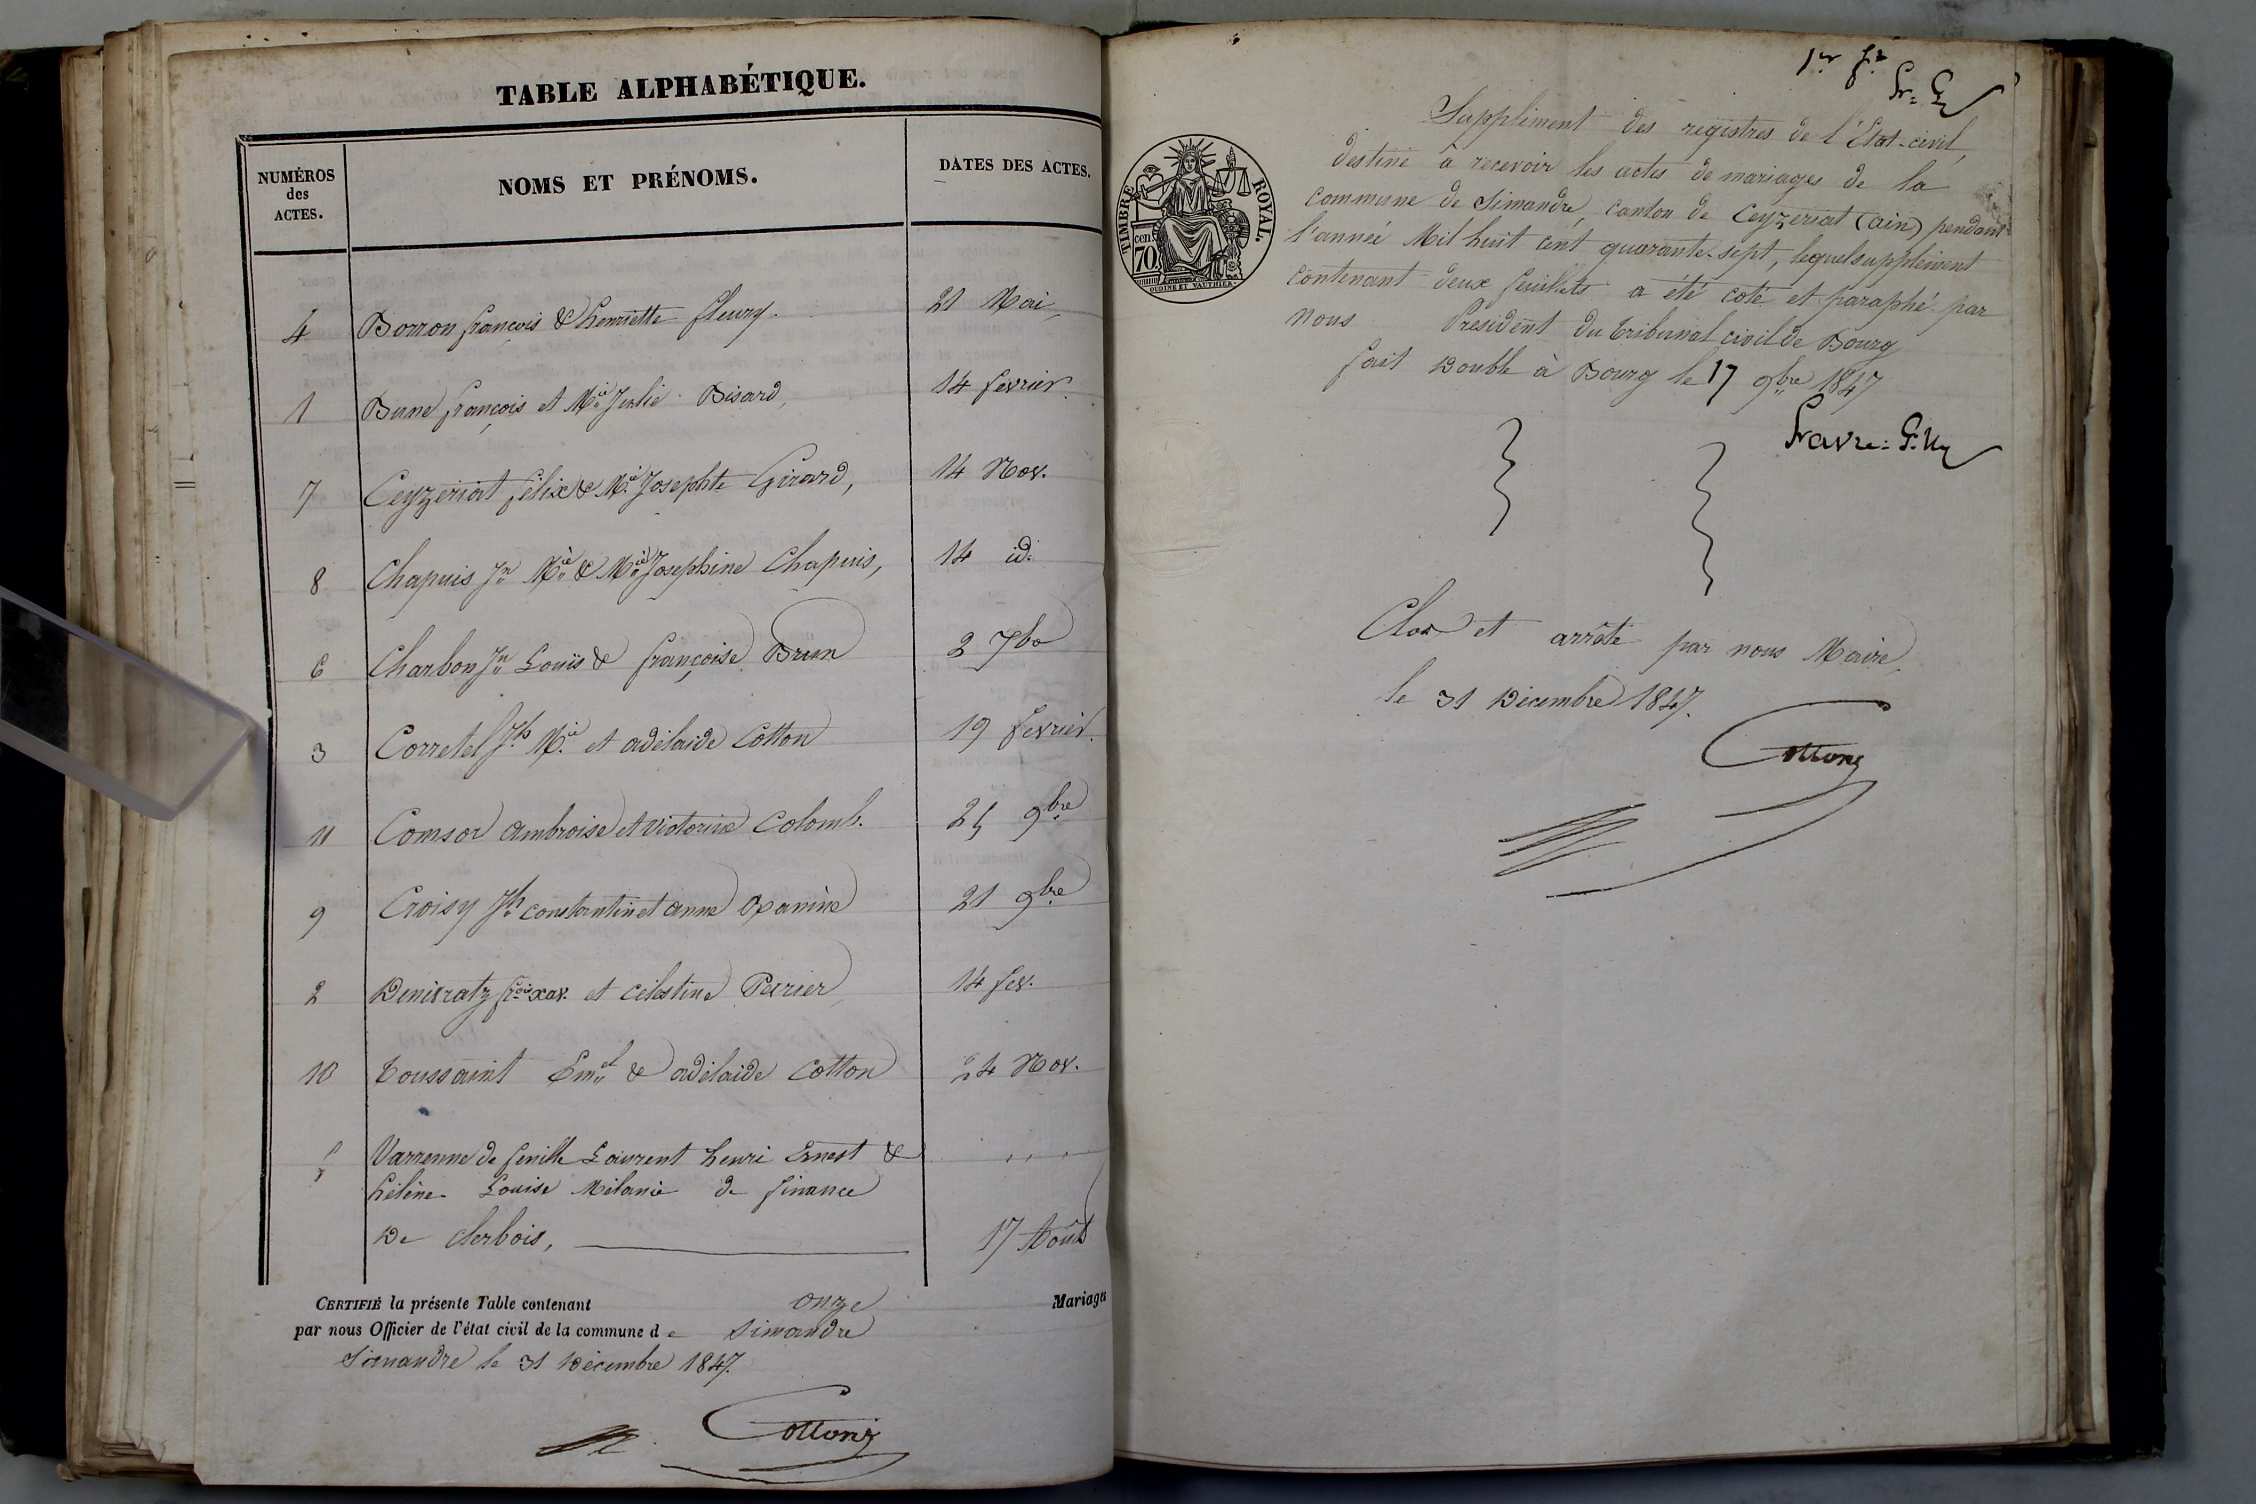 TABLE ALPHABÉTIQUE.
NUMÉROS
des
ACTES.
NOMS ET PRÉNOMS.
DATES DES ACTES.
4 Borron françois & henriette fleury. 21 Mai,
1 Brune françois et Mie Julie Bisard, 14 fevrier.
7 Ceyzeriat félix & Mie Josephte Girard, 14 Nov.
8 Chapuis Jn Mie & Mie Josephine Chapuis, 14 id.
6 Charbon Jn Louis & françoise Brun 2 7bre
3 Corretel Jh Mie et adélaide Cotton 19 fevrier.
11 Comsor ambroise et victorine Colomb. 25 9bre
9 Croisy Jh constantin et anne 21 9bre
2 xav. et célestine Perrier 14 fev.
10 Toussaint Emel & adélaide Cotton 24 Nov.
5 Varenne de fenille Laurent henri Ernest &
hélène Louise Mélanie de finance
De Clerbois, 17 Août
CERTIFIÉ la présente Table contenant onze Mariages
par nous Officier de l'état civil de la commune de Simandre
Simandre le 31 Décembre 1847.
Cotton
1er ft
TIMBRE ROYAL.
cen.
70
OUDINÉ ET VAUTHIER.
Supplément des registres de l'État-civil,
destiné à recevoir les actes de mariages de la
commune de Simandre, canton de Ceyzeriat (ain) pendant
l'année Mil huit cent quarante-sept, lequel supplément
contenant deux feuillets a été coté et paraphé par
nous Président du tribunal civil de Bourg
fait Double à Bourg le 17 9bre 1847
Clos et arrêté par nous Maire,
le 31 Décembre 1847.
Cotton